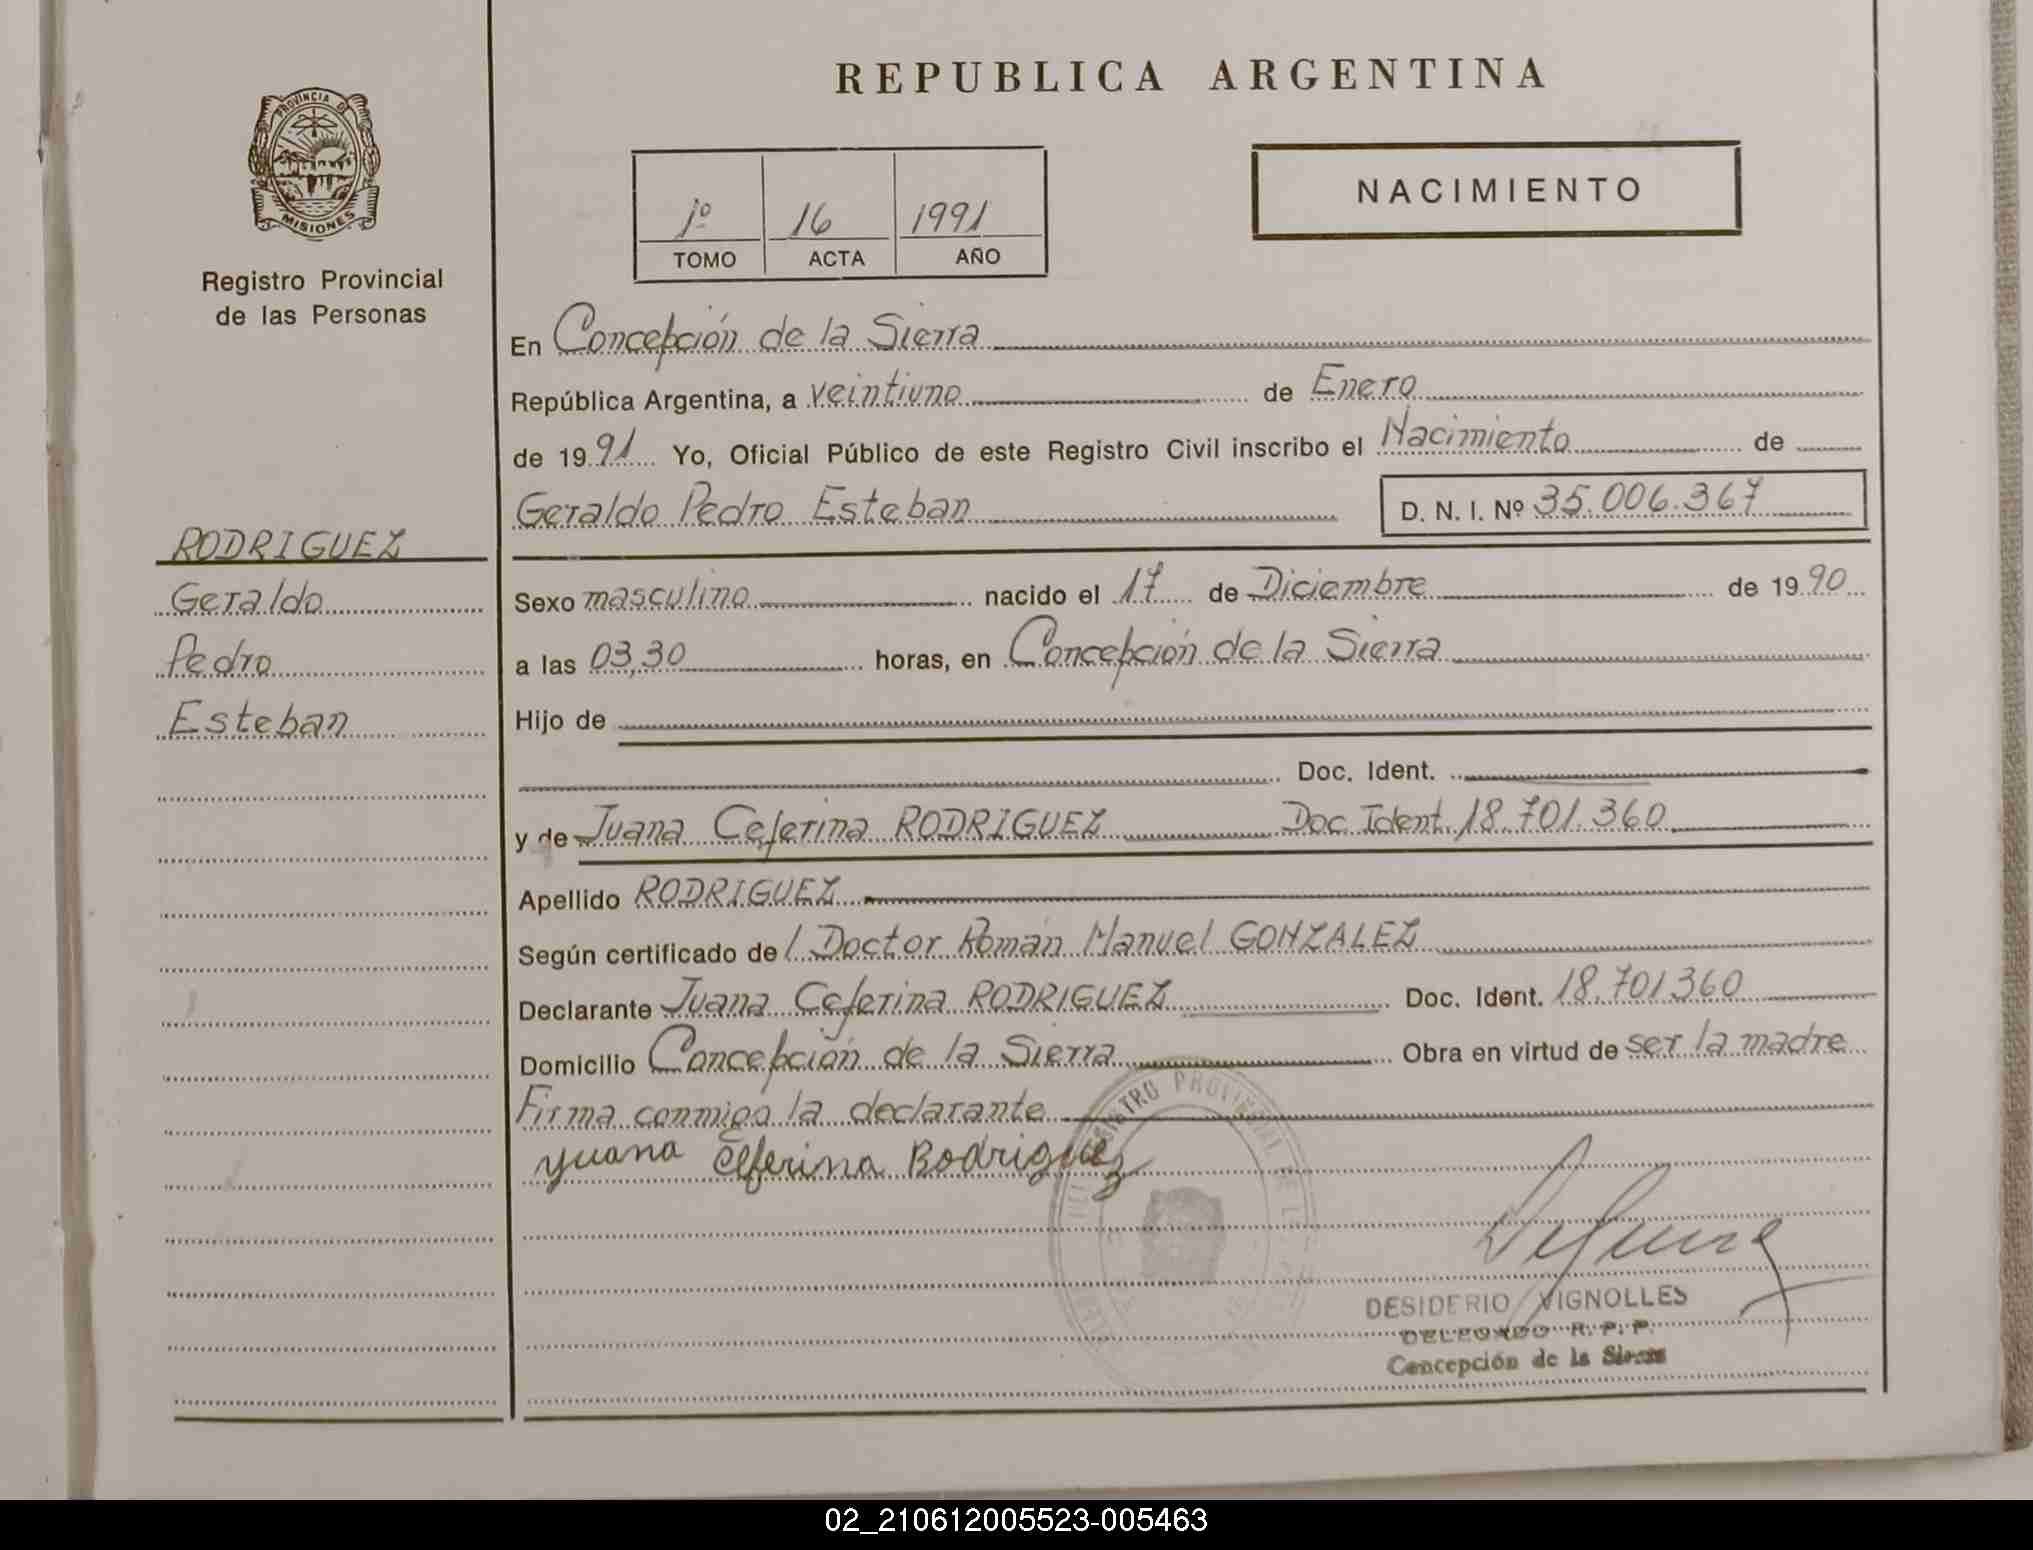 REPUBLICA ARGENTINA
PROVINCIA D
MISIONES
Registro Provincial
de las Personas
1º 16 1991
TOMO ACTA AÑO
NACIMIENTO
En Concepción de la Sierra
República Argentina, a veintiuno de Enero
de 1991 Yo, Oficial Público de este Registro Civil inscribo el Nacimiento de
Geraldo Pedro Esteban D. N. I. Nº 35.006.367
RODRIGUEZ
Geraldo
Pedro
Esteban
Sexo masculino nacido el 17 de Diciembre de 1990
a las 03,30 horas, en Concepción de la Sierra
Hijo de
Doc. Ident.
y de Juana Ceferina RODRIGUEZ Doc Ident. 18.701.360
Apellido RODRIGUEZ
Según certificado de l Doctor Román Manuel GONZALEZ
Declarante Juana Ceferina RODRIGUEZ Doc. Ident. 18.701360
Domicilio Concepción de la Sierra Obra en virtud de ser la madre
Firma conmigo la declarante
yuana Ceferina Rodriguez
REGISTRO PROVINCIAL DE
DESIDERIO VIGNOLLES
DELEGADO R. P. P.
Concepción de la Sierra
02_210612005523-005463